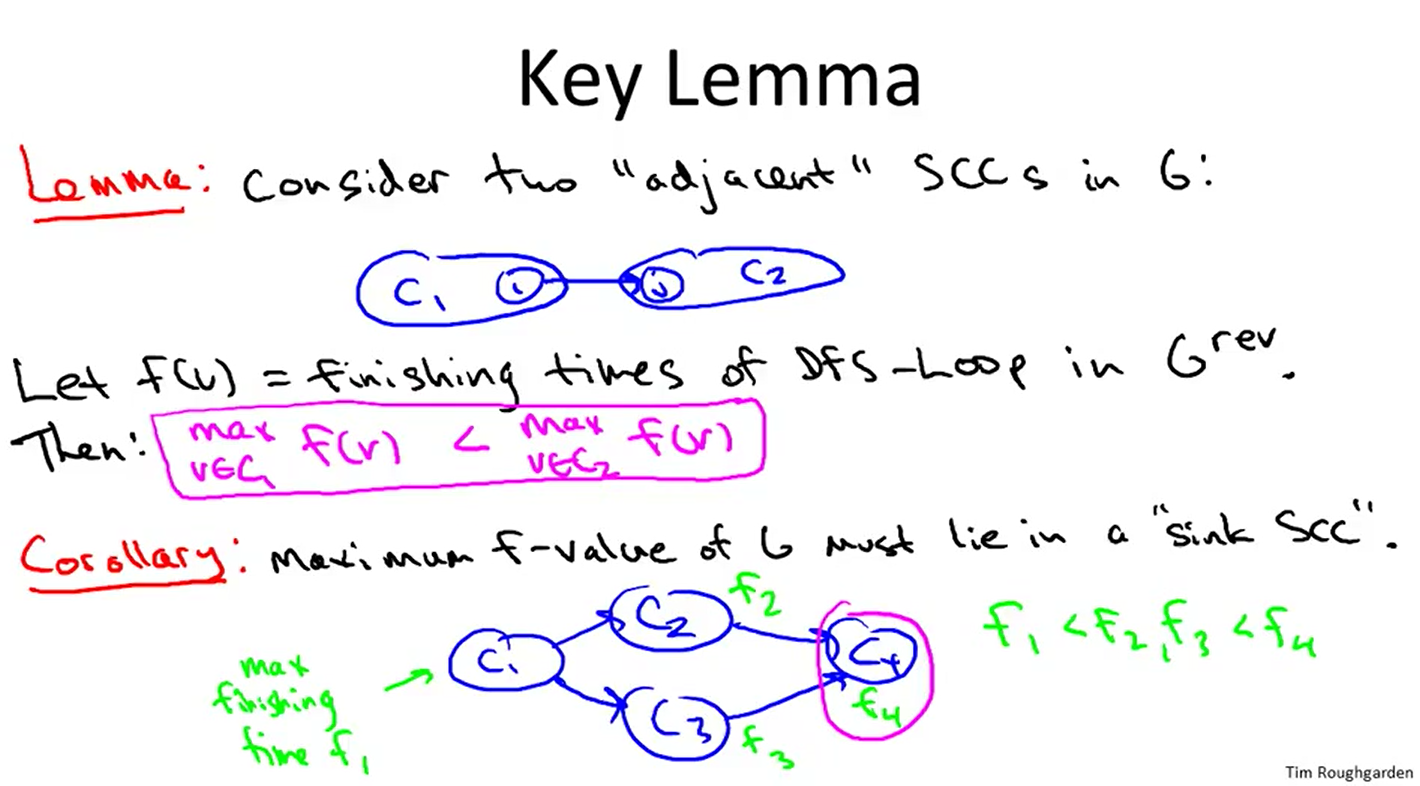 Key Lemma
Lemma: Consider two "adjacent" SCCs in G:
C1 i j C2
Let f(v) = finishing times of DFS-Loop in G^rev.
Then: max v∈C1 f(v) < max v∈C2 f(v)
Corollary: maximum f-value of G must lie in a "sink SCC".
C2 f2
f1 < f2, f3 < f4
C1 C4
max finishing time f1
f4
C3 f3
Tim Roughgarden